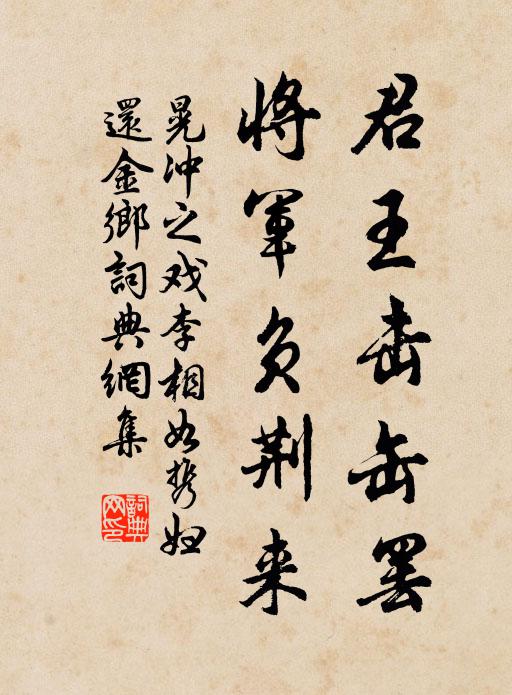 君王击缶罢
将军负荆来
晁冲之戏李相如携妇
還金鄉詞典網集
詞典
网印